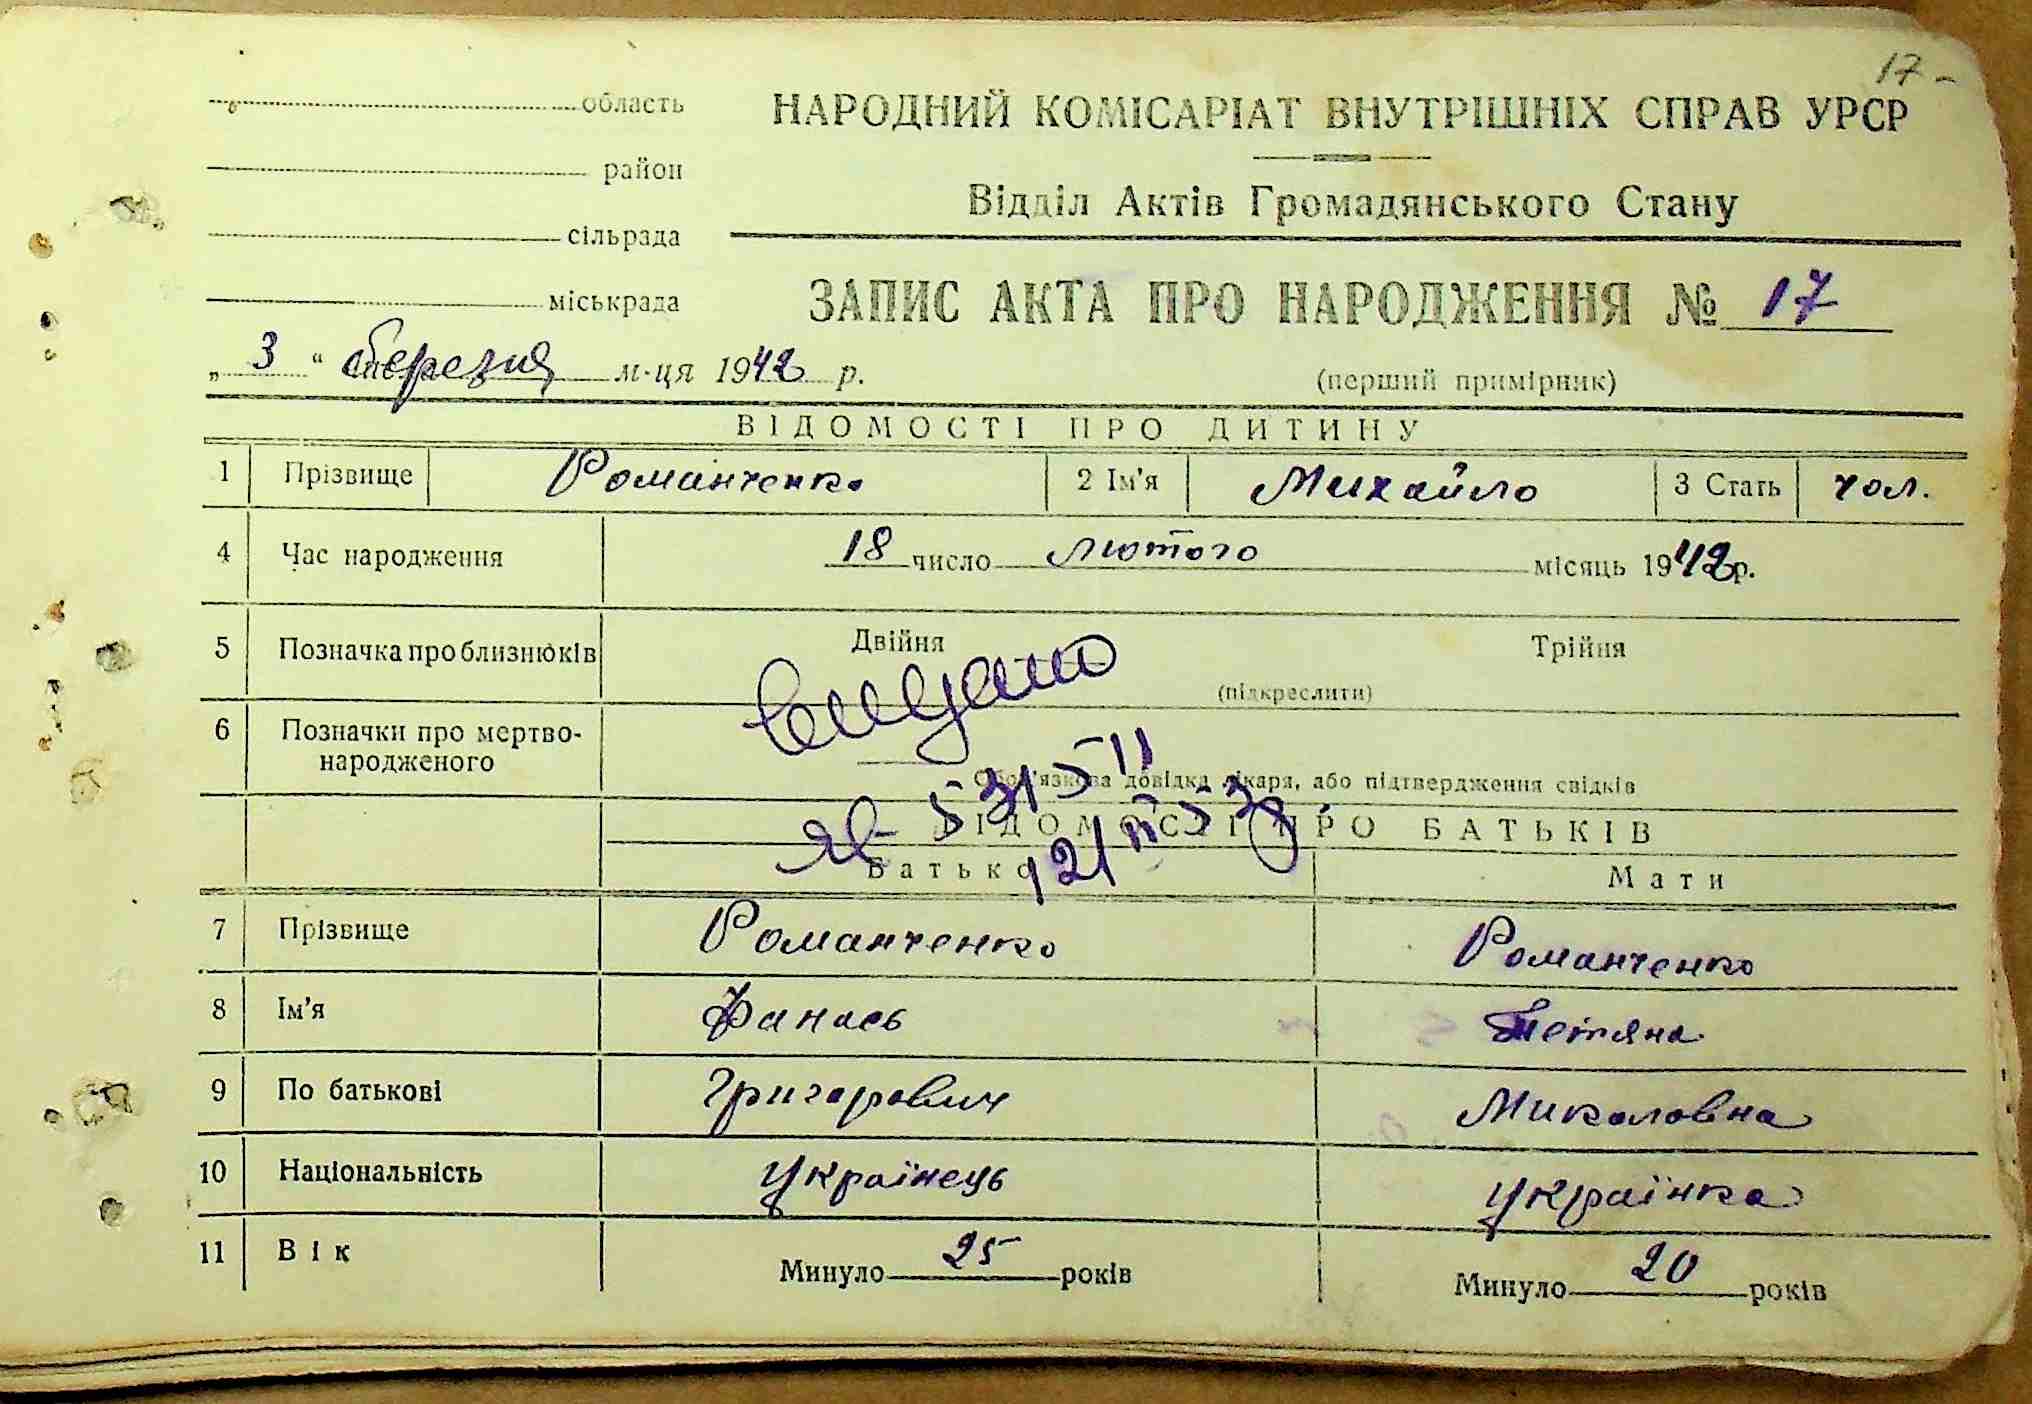 17-
область
район
сільрада
міськрада
НАРОДНИЙ КОМІСАРІАТ ВНУТРІШНІХ СПРАВ УРСР
Відділ Актів Громадянського Стану
ЗАПИС АКТА ПРО НАРОДЖЕННЯ № 17
„ 3 “ березня м-ця 1942 р.
(перший примірник)
ВІДОМОСТІ ПРО ДИТИНУ
1 Прізвище Романченко 2 Ім'я Михайло 3 Стать чол.
4 Час народження 18 число лютого місяць 1942 р.
5 Позначка про близнюків Двійня Трійня
(підкреслити)
6 Позначки про мертвонародженого
Обов'язкова довідка лікаря, або підтвердження свідків
ВІДОМОСТІ ПРО БАТЬКІВ
Батько Мати
7 Прізвище Романченко Романченко
8 Ім'я Панась Тетяна
9 По батькові Григорович Миколовна
10 Національність Українець Українка
11 Вік Минуло 25 років Минуло 20 років